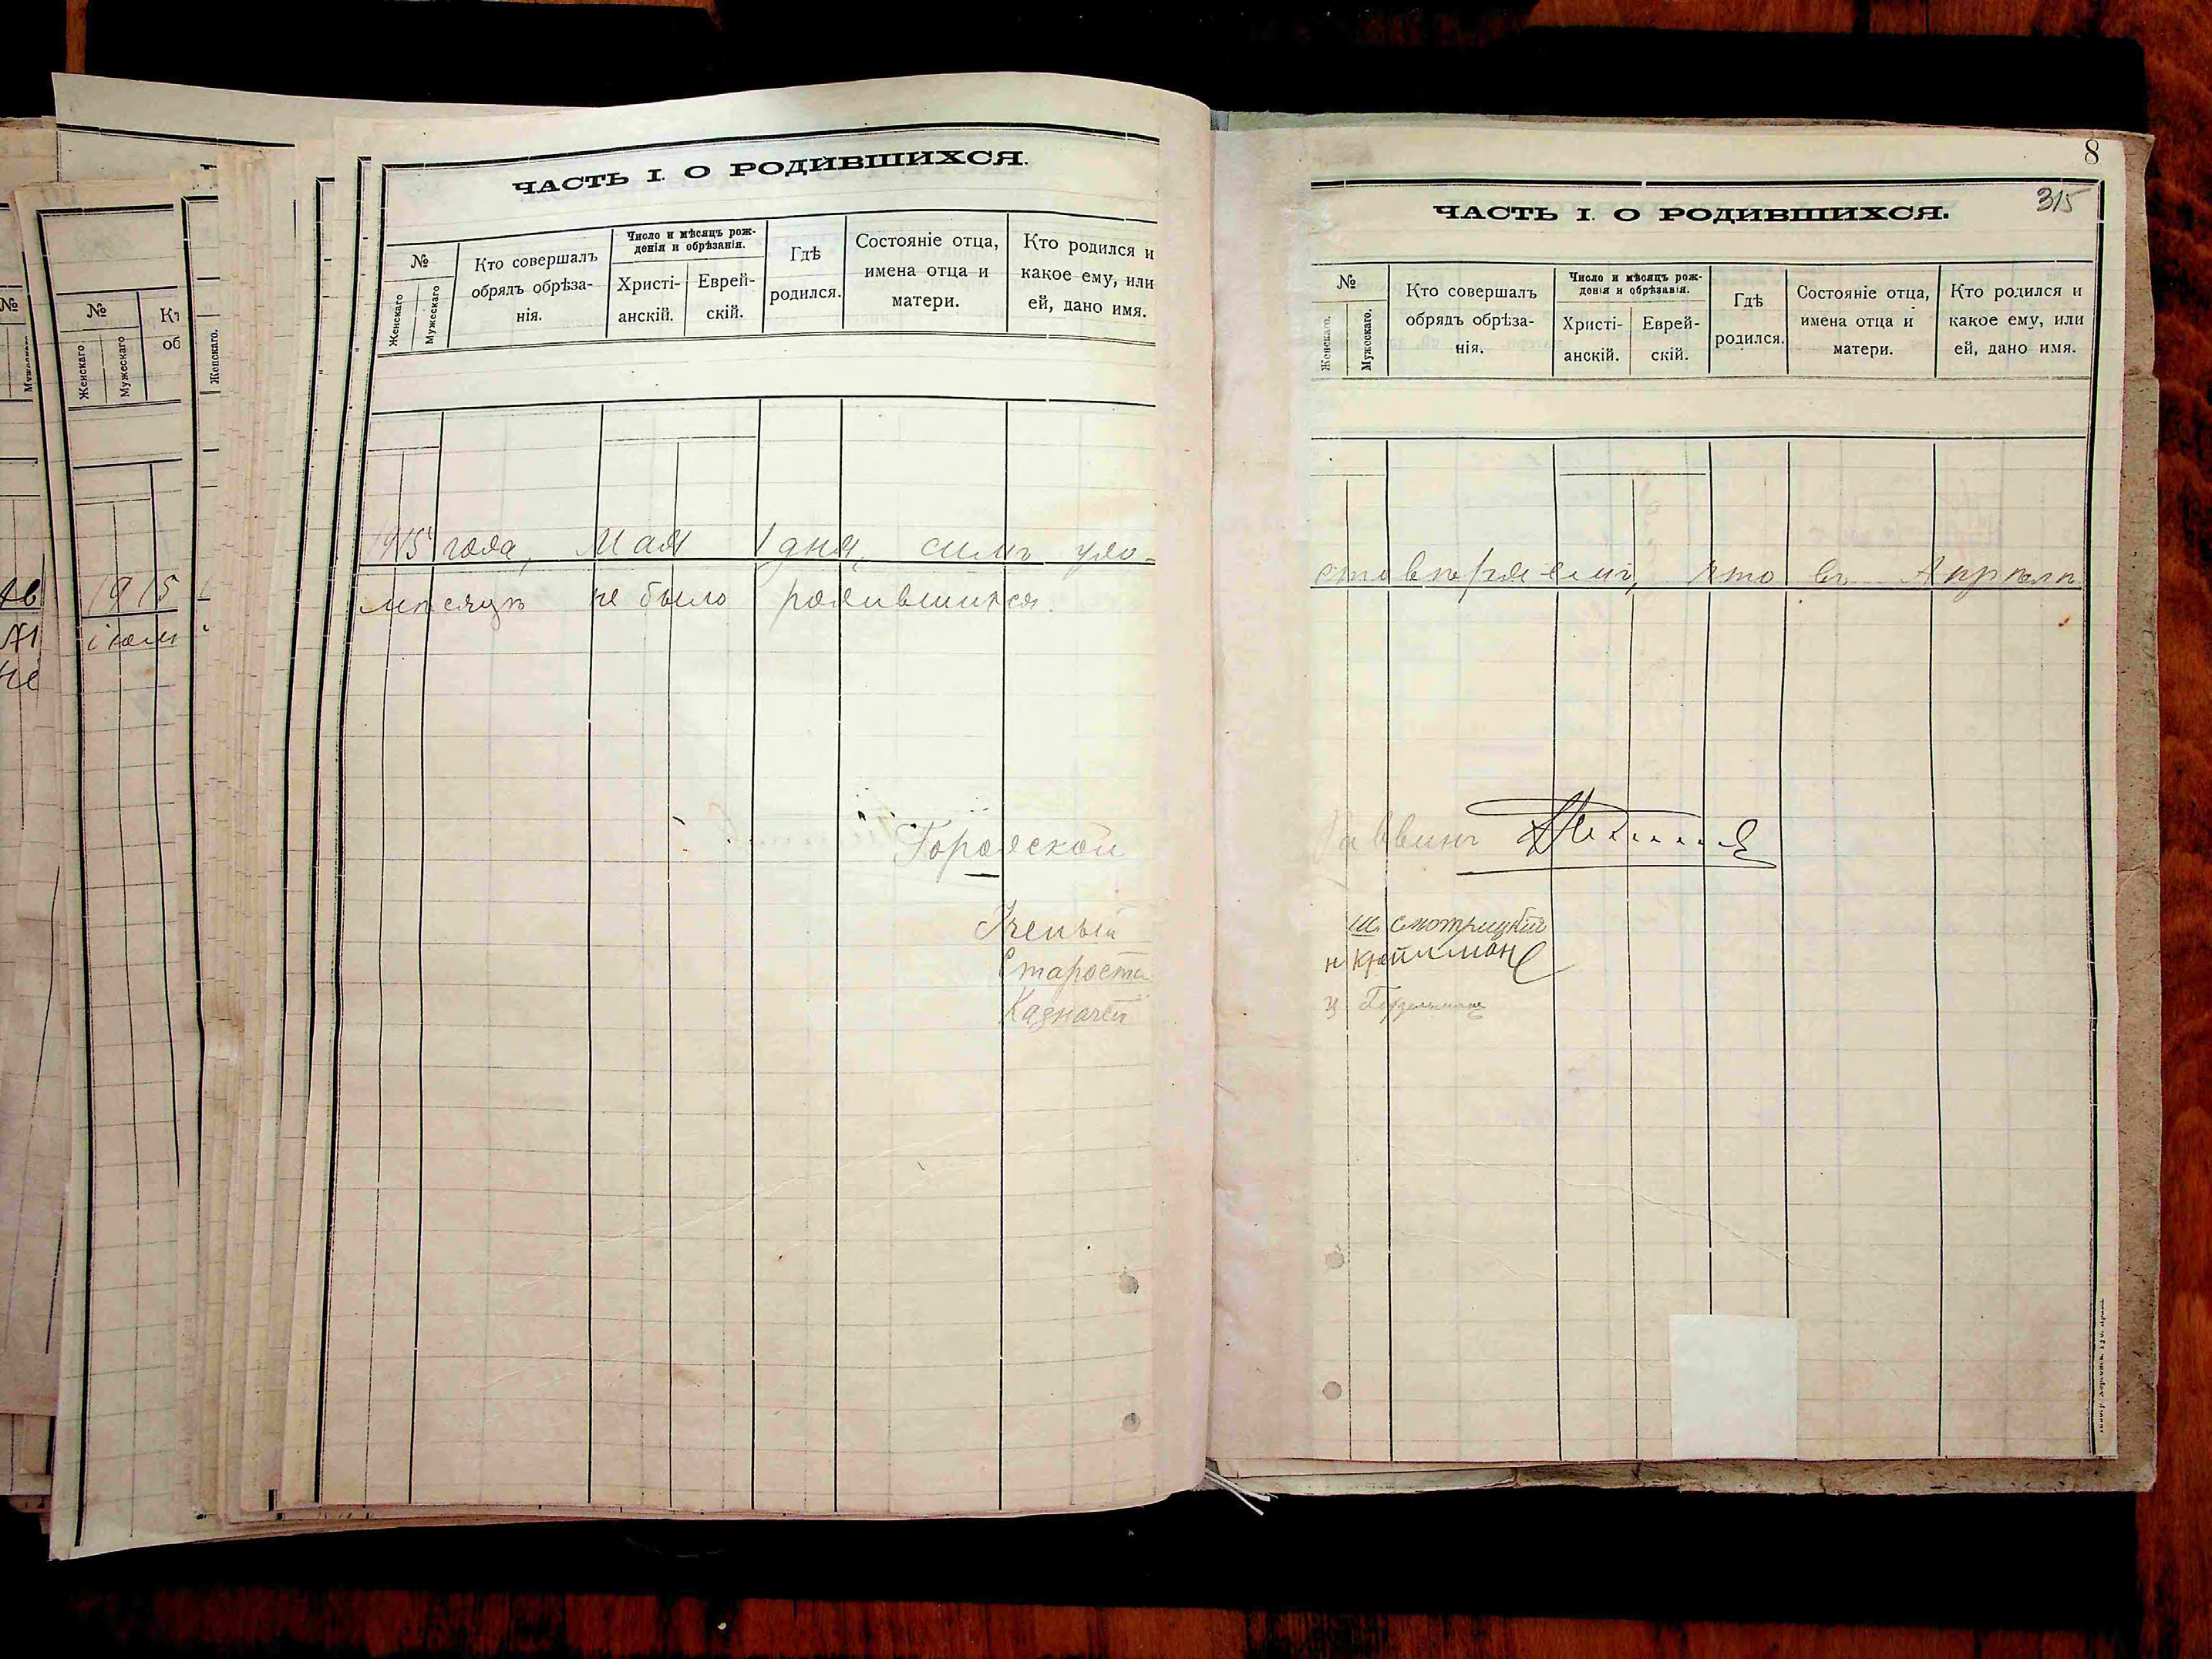 ЧАСТЬ I. О РОДИВШИХСЯ.
№
Женскаго
Мужескаго
Кто совершалъ
обрядъ обрѣза-
нія.
Число и мѣсяцъ рож-
денія и обрѣзанія.
Христі-
анскій.
Еврей-
скій.
Гдѣ
родился.
Состояніе отца,
имена отца и
матери.
Кто родился и
какое ему, или
ей, дано имя.
1915 года, Мая 1 дня, симъ удо-
мѣсяцѣ не было родившихся.
Городской
Ученый
Староста
Казначей
8
315
ЧАСТЬ I. О РОДИВШИХСЯ.
№
Женскаго.
Мужескаго.
Кто совершалъ
обрядъ обрѣза-
нія.
Число и мѣсяцъ рож-
денія и обрѣзанія.
Христі-
анскій.
Еврей-
скій.
Гдѣ
родился.
Состояніе отца,
имена отца и
матери.
Кто родился и
какое ему, или
ей, дано имя.
стовѣряемъ, что въ Апрѣлѣ
Раввинъ
Ш. Смотрицкій
Н Крейлман
№
Женскаго
Мужескаго
1915
іюля
Женскаго.
№